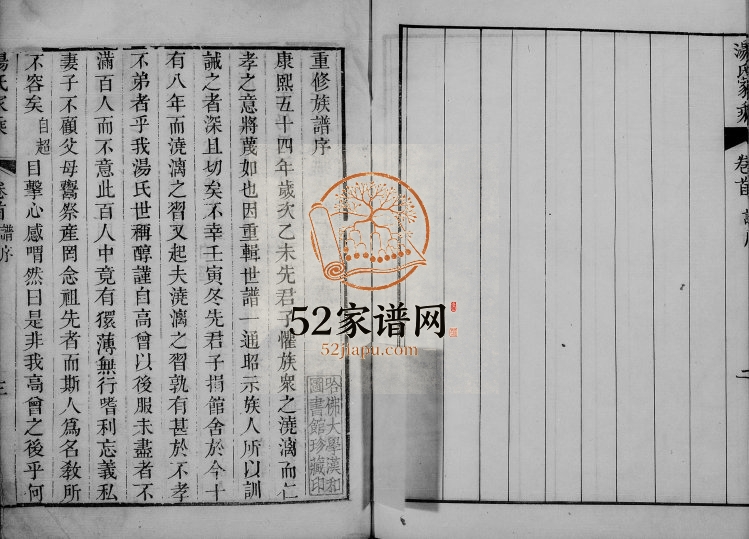 湯氏家乘
卷首
譜序
二
重修族譜序
康熙五十四年歲次乙未先君子懼族衆之澆漓而仁
孝之意將蔑如也因重輯世譜一通昭示族人所以訓
誡之者深且切矣不幸壬寅冬先君子捐館舍於今十
有八年而澆漓之習又起夫澆漓之習孰有甚於不孝
不弟者乎我湯氏世稱醇謹自高曾以後服未盡者不
滿百人而不意此百人中竟有獧薄無行嗜利忘義私
妻子不顧父母鬻祭産罔念祖先者而斯人爲名敎所
不容矣自超目擊心感喟然曰是非我高曾之後乎何
湯氏家乘
卷首
譜序
三
哈佛大學漢和
圖書館珍藏印
52家谱网
52jiapu.com